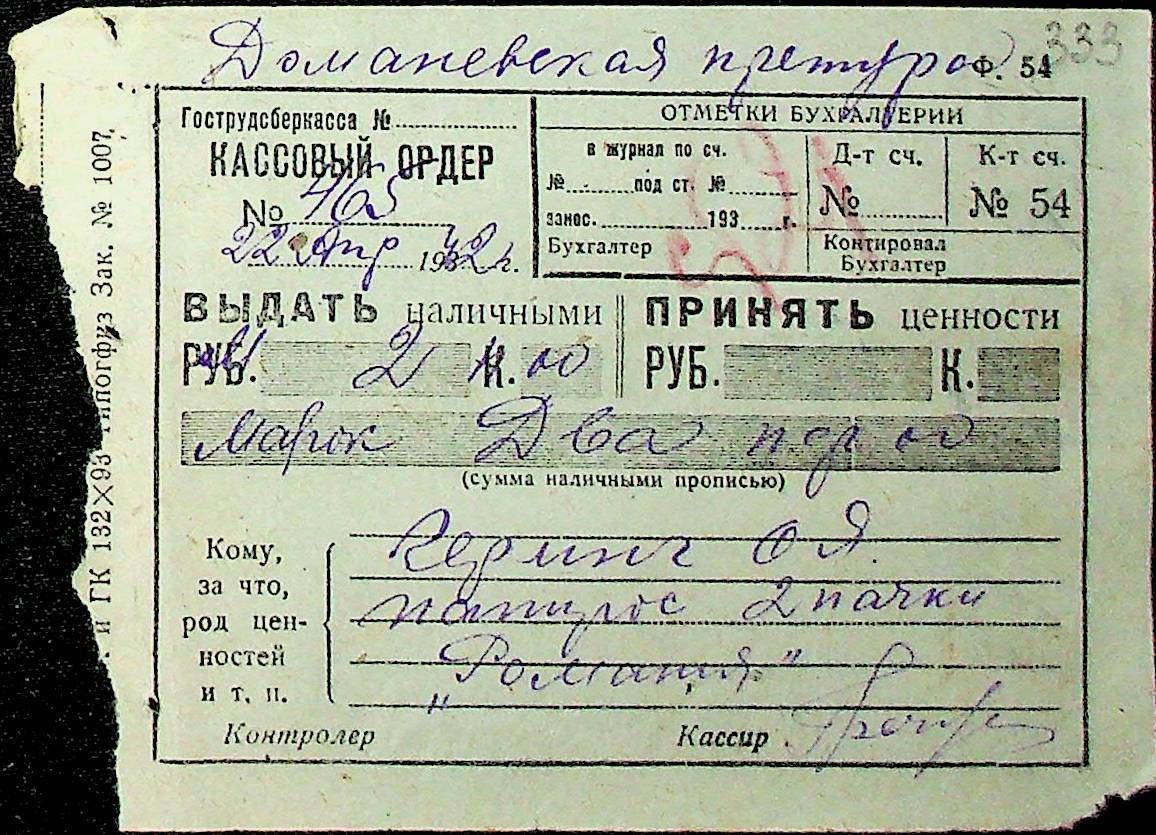 333
Доманевская претура Ф. 54
Гострудсберкасса №
КАССОВЫЙ ОРДЕР
№ 465
22 Апр 1942 г.
ОТМЕТКИ БУХГАЛТЕРИИ
в журнал по сч.
№ под ст. №
занос. 193 г.
Бухгалтер
Д-т сч.
№
К-т сч.
№ 54
Контировал
Бухгалтер
ВЫДАТЬ наличными
РУБ. 2 К. 00
ПРИНЯТЬ ценности
РУБ. К.
Марок Два пф 00
(сумма наличными прописью)
Кому,
за что,
род цен-
ностей
и т. п.
О Я.
папирос 2 пачки
„Романия"
Контролер
Кассир
и ГК 132×93 Типогфиз Зак. № 1007